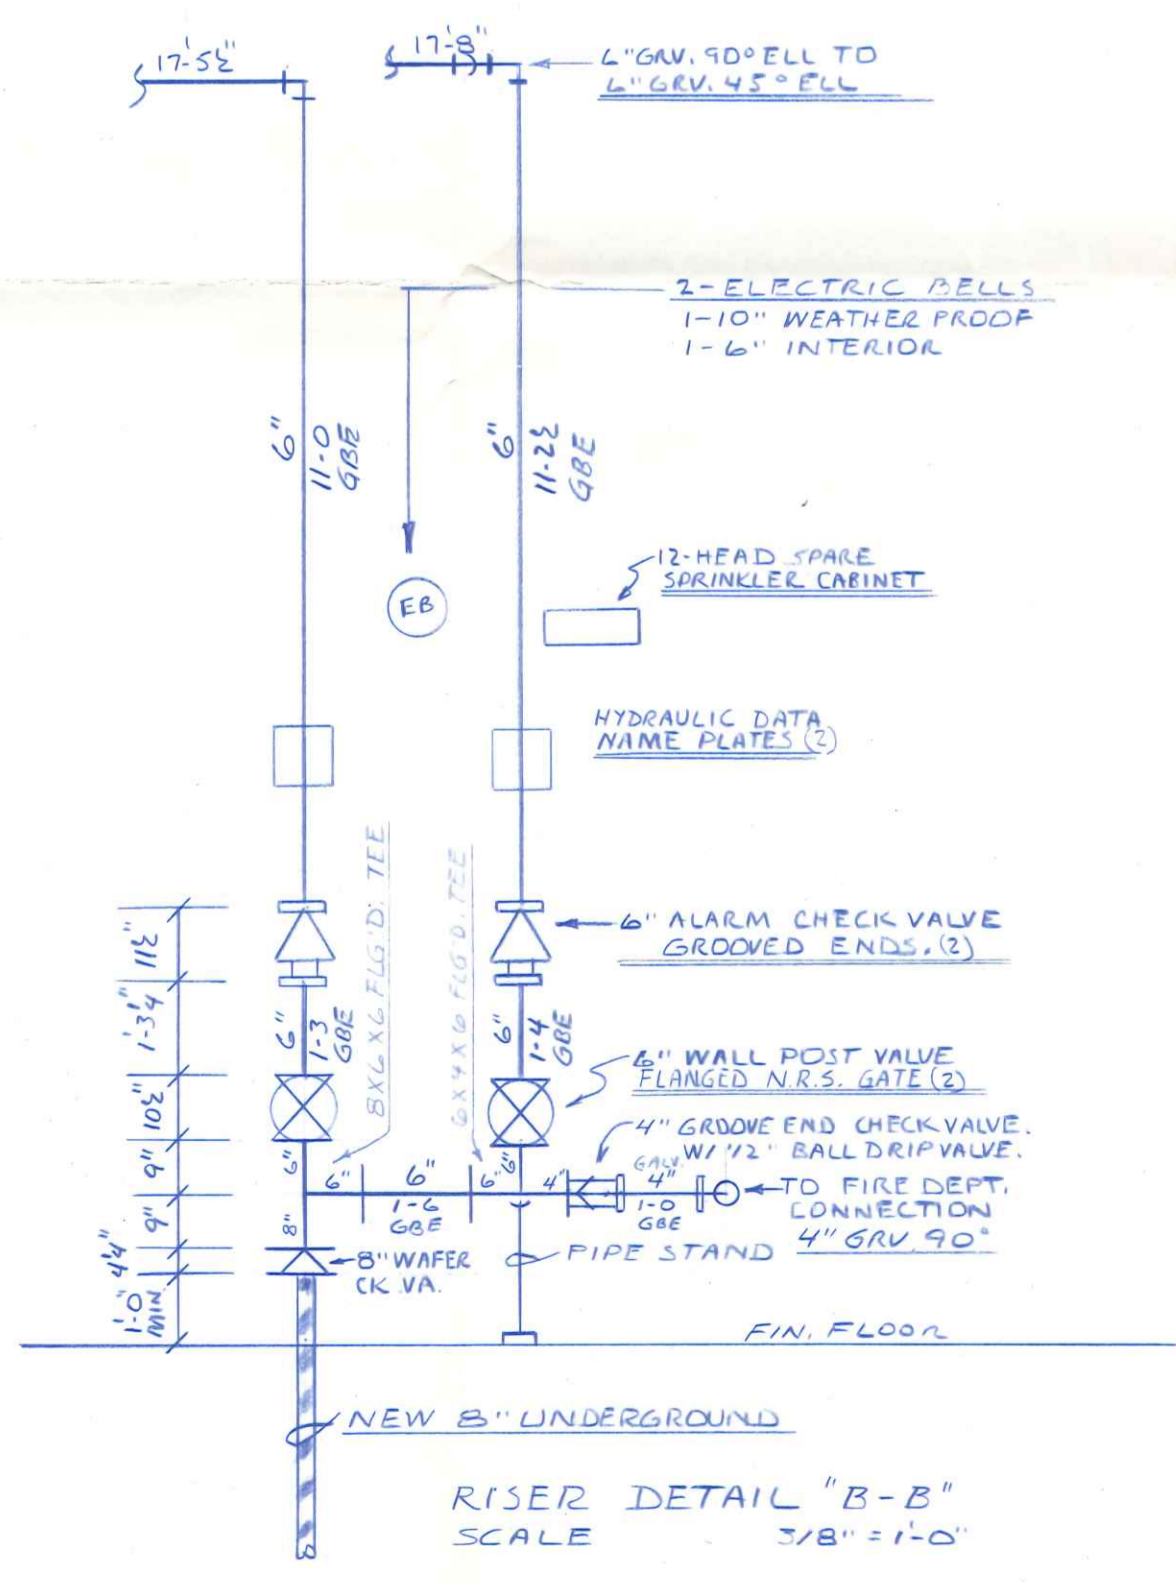 17'-5½"
17'-8"
6" GRV. 90° ELL TO
6" GRV. 45° ELL
2-ELECTRIC BELLS
1-10" WEATHER PROOF
1-6" INTERIOR
6"
11-0
GBE
6"
11-2½
GBE
12-HEAD SPARE
SPRINKLER CABINET
EB
HYDRAULIC DATA
NAME PLATES (2)
8X6X6 FLG'D. TEE
6X4X6 FLG'D. TEE
6" ALARM CHECK VALVE
GROOVED ENDS. (2)
11½"
1'-3¼"
10½"
9"
9"
4¼"
1'-0"
MIN.
6"
1-3
GBE
6"
1-4
GBE
6" WALL POST VALVE
FLANGED N.R.S. GATE (2)
4" GROOVE END CHECK VALVE.
W/ 1/2" BALL DRIP VALVE.
6"
6"
6"
1-6
GBE
6"
6"
4"
GALV.
4"
1-0
GBE
TO FIRE DEPT.
CONNECTION
4" GRV. 90°
8"
8" WAFER
CK VA.
PIPE STAND
FIN. FLOOR
NEW 8" UNDERGROUND
RISER DETAIL "B-B"
SCALE 3/8" = 1'-0"